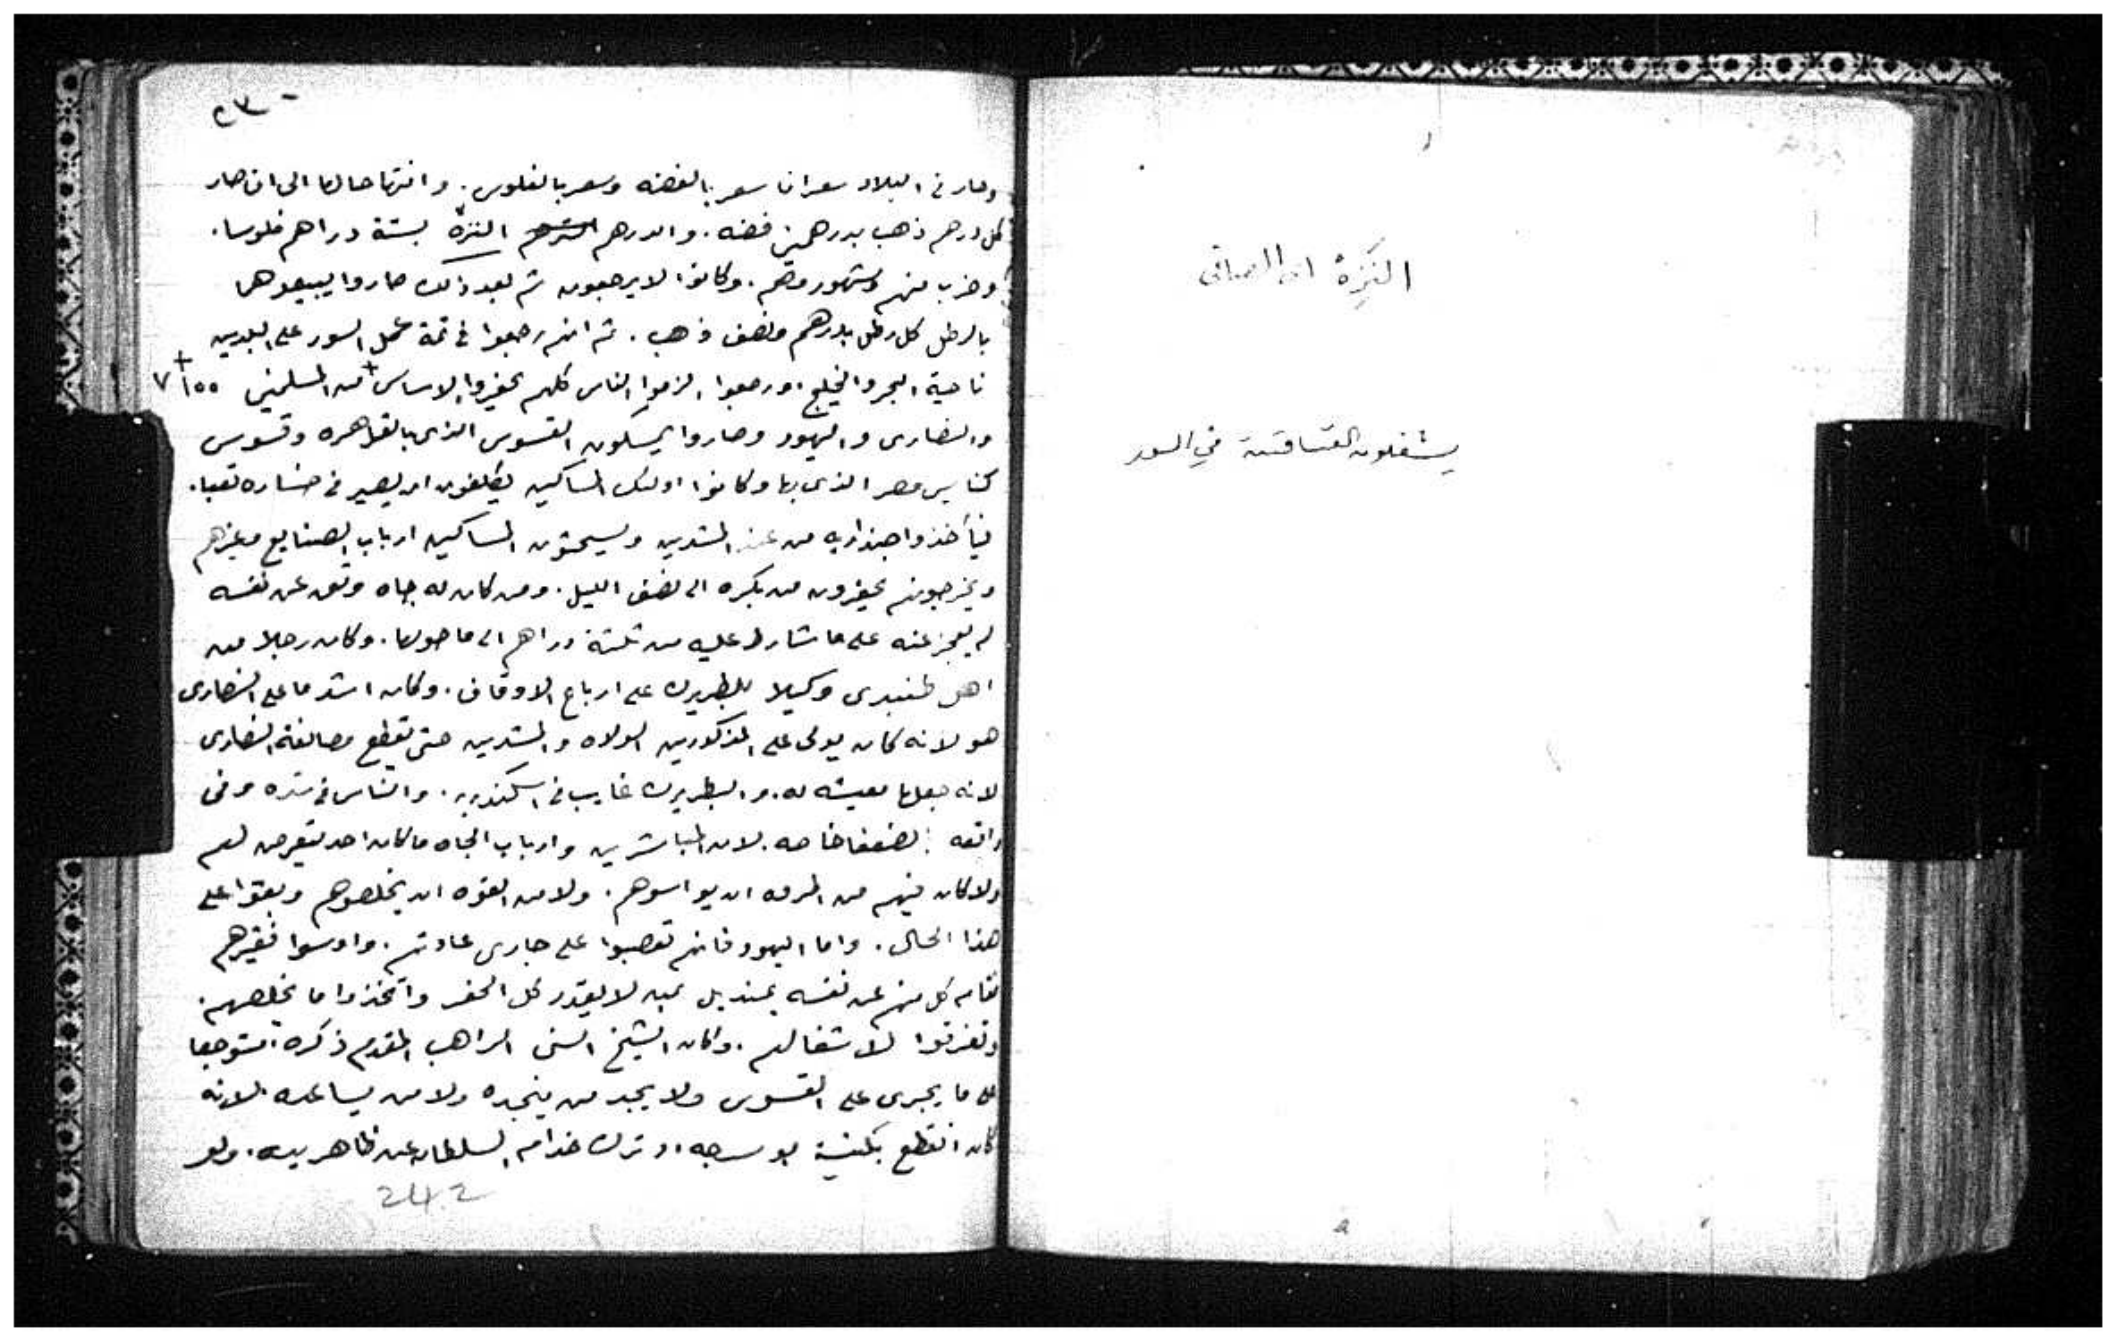 النَزِة اى الصافى
يشغلون القساقسة في السور
٢٣٠
وصار فى البلاد سعران سعر بالفضه وسعر بالفلوس. وانتها حالها الى ان صار
كل درهم ذهب بدرهمين فضه. والدرهم النزة بستة دراهم فلوسا.
وضرب منهم وشهور وهم. وكانوا لا يرجعون ثم بعد ذلك صاروا يبيعوها
بالرطل كل رطل بدرهم ونصف ذهب. ثم انهم رجعوا فى تمة عمل السور على البلدين
ناحية البحر والخليج. ورجعوا الزموا الناس كلهم بحفروا الاساس + من المسلمين
+
٧ ١٥٥
والنصارى واليهود وصاروا يمسكون القسوس الذى بالقاهره وقسوس
كنايس مصر الذى بها وكانوا اولئك المساكين يكلفون ان يصير فى خساره تعبا.
فيأخذوا من عند المشدين ويسحتون المساكين ارباب الصنايع وغيرهم
ويخرجونهم يحفرون من بكره الى نصف الليل. ومن كان له جاه وتق عن نفسه
لم يعجز عنه على ما شارط عليه من ثلثة دراهم الى ما حولها. وكان رجلا من
اهل طنبدى وكيلا للبطريرك على ارباع الاوقاف. وكان اشد ما على النصارى
هو لانه كان يولى على المذكورين الولاه والمشدين حتى يقطع مصانعة النصارى
لانه جعلها معيشه له. والبطريرك غايب فى اسكندريه. والناس فى شده وفى
ضعفا خاصه. لان المباشرين وارباب الجاه ما كان احد يتعرض لهم
ولا كان فيهم من المروه ان يواسوهم. ولا من القوه ان يخلصوهم وبقوا على
هذا الحال. واما اليهود فانهم تعصبوا على جارى عادتهم. واوسوا فقيرهم
فقام كل منهم عن نفسه بمنديل عمن لا يقدر على الحفر واتخذوا ما يخلصهم.
وتفرقوا لاشغالهم. وكان الشيخ السنى الراهب المقدم ذكره متوجعا
على ما يجرى على القسوس ولا يجد من ينجده ولا من يساعده. لانه
كان انقطع بكنيسة بو سرجه. وترك خدام السلطان عن ظاهر يده. ولو
242